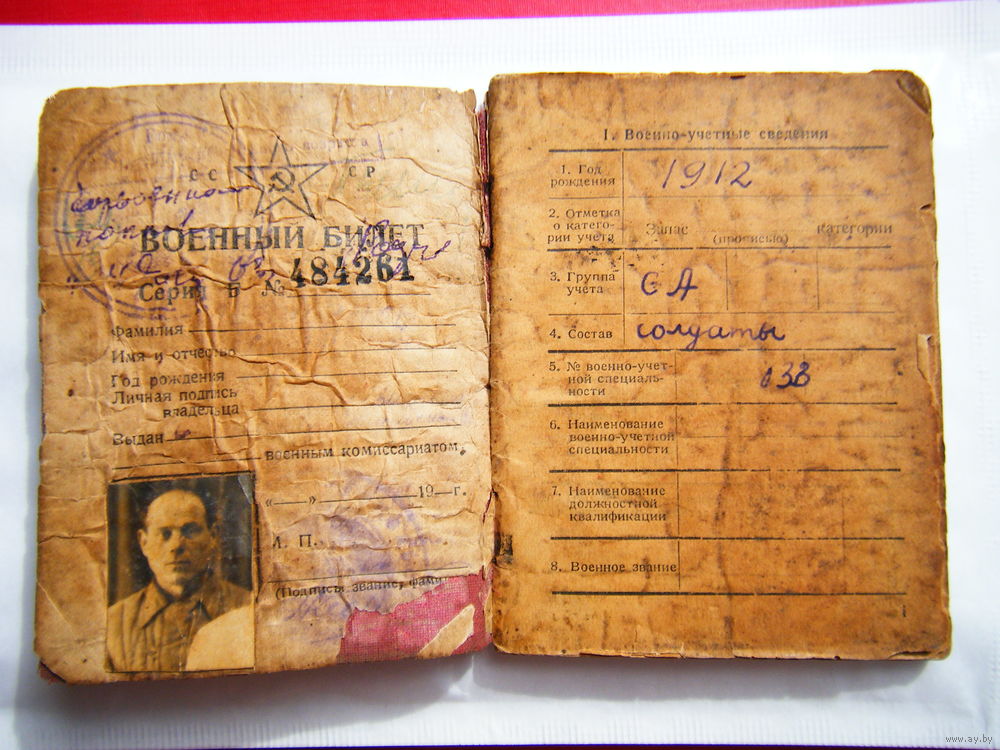 СС СР
ВОЕННЫЙ БИЛЕТ
Серия Б № 484261
Фамилия
Имя и отчество
Год рождения
Личная подпись
владельца
Выдан
военным комиссариатом
«—» 19—г.
М. П.
(Подпись, звание,
I. Военно-учетные сведения
1. Год
рождения
1912
2. Отметка
о катего-
рии учета
Запас (прописью) категории
3. Группа
учета
СА
4. Состав
солдаты
5. № военно-учет-
ной специаль-
ности
133
6. Наименование
военно-учетной
специальности
7. Наименование
должностной
квалификации
8. Военное звание
1
www.ay.by